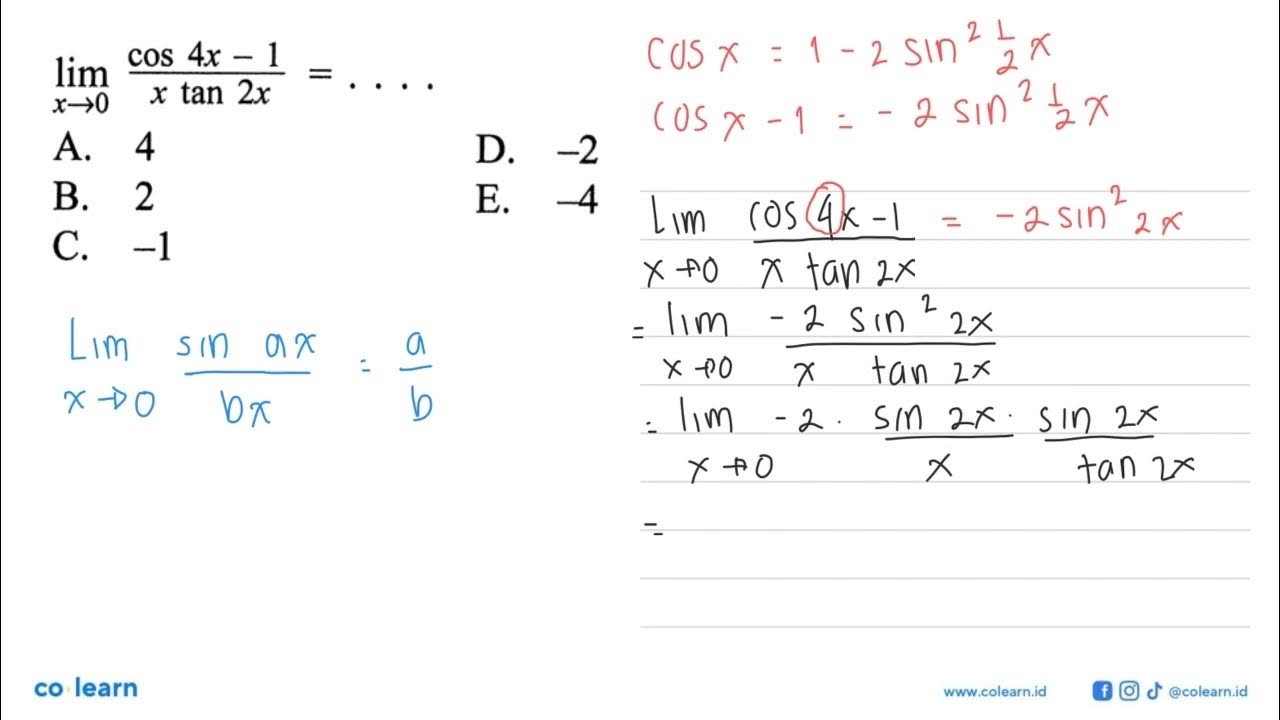 lim x→0 (cos 4x − 1)/(x tan 2x) = . . . .
A. 4
B. 2
C. −1
D. −2
E. −4
Lim x→0 (sin ax)/(bx) = a/b
cos x = 1 - 2 sin² ½ x
cos x - 1 = - 2 sin² ½ x
Lim x→0 (cos 4x - 1)/(x tan 2x) = - 2 sin² 2x
= lim x→0 (- 2 sin² 2x)/(x tan 2x)
= lim x→0 - 2 · (sin 2x)/(x) · (sin 2x)/(tan 2x)
=
co learn
www.colearn.id
@colearn.id